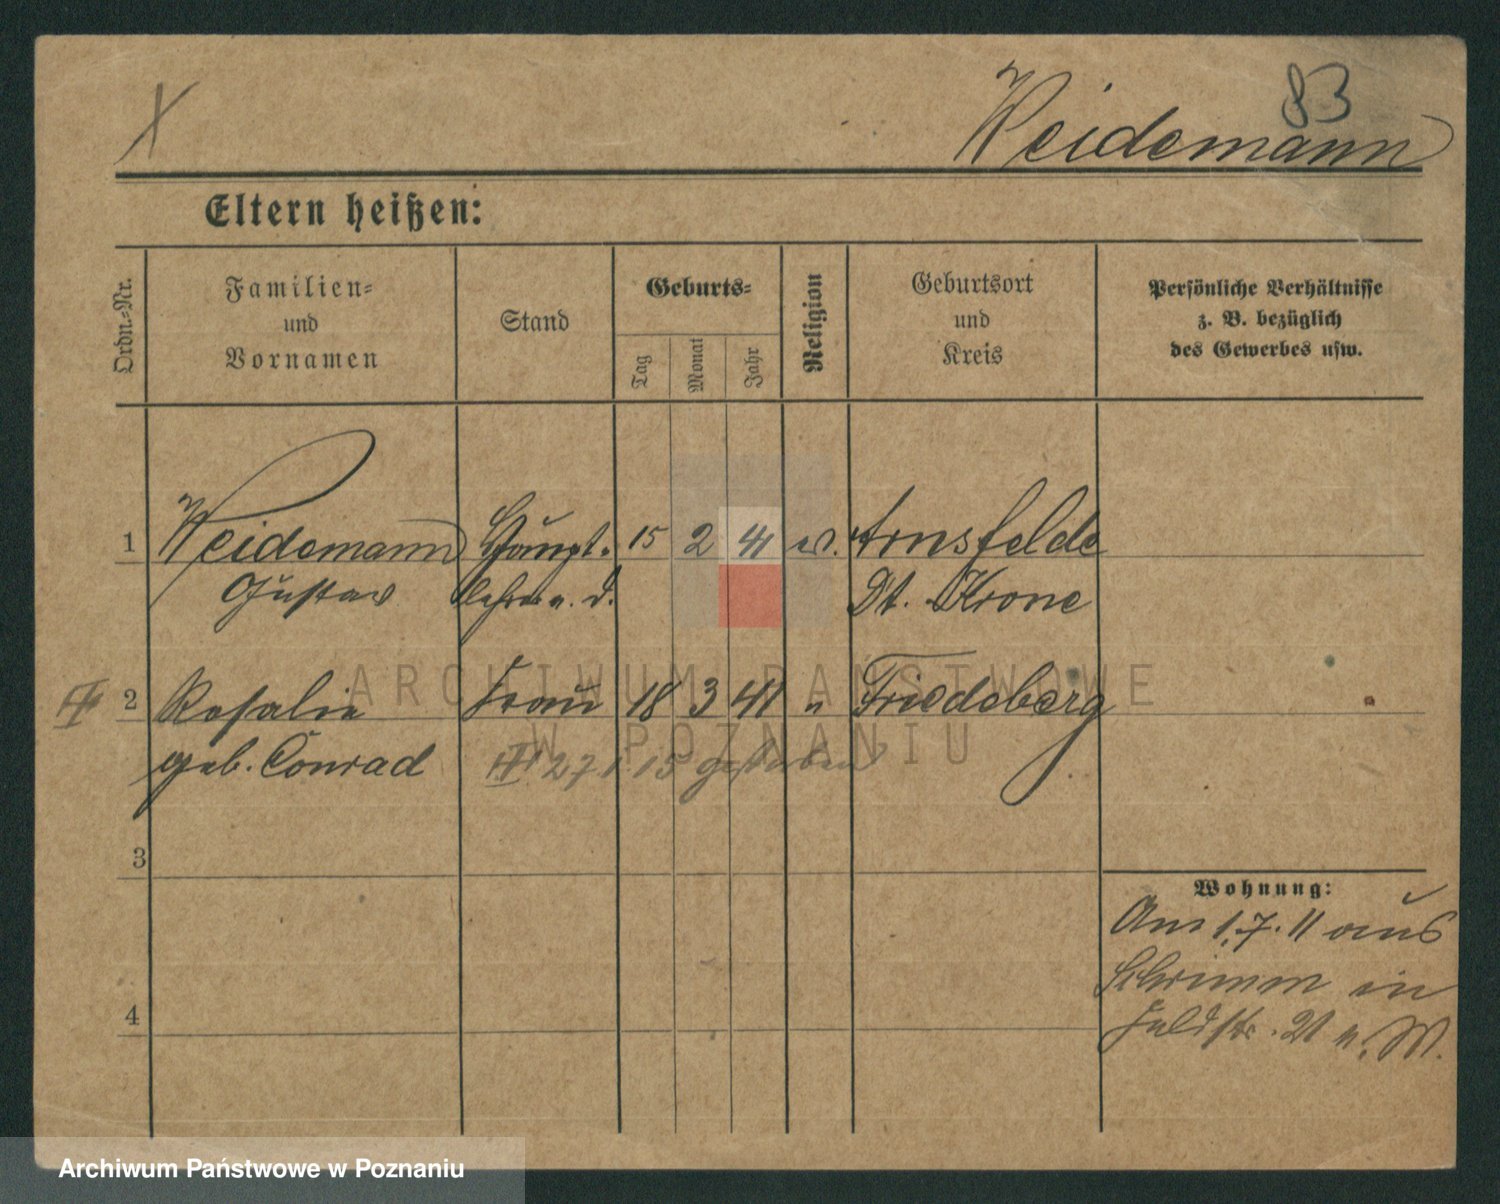 83
Weidemann
Eltern heißen:
Ordn.-Nr.
Familien-
und
Vornamen
Stand
Geburts-
Tag
Monat
Jahr
Religion
Geburtsort
und
Kreis
Persönliche Verhältnisse
z. B. bezüglich
des Gewerbes usw.
1 Weidemann Haupt- 15 2 41 ev. Arnsfelde
Gustav lehrer a. D. Dt. Krone
2 Rosalie Frau 18 3 41 " Friedeberg
geb. Conrad
27 1 15 gestorben
3
4
Wohnung:
Am 1.7.11 aus
Schrimm in
Feldstr. 21 n. W.
ARCHIWUM PAŃSTWOWE
W POZNANIU
Archiwum Państwowe w Poznaniu